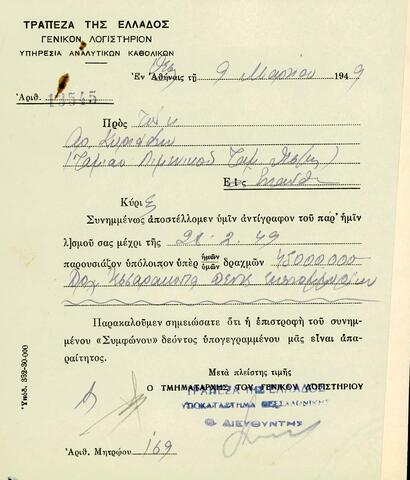 ΤΡΑΠΕΖΑ ΤΗΣ ΕΛΛΑΔΟΣ
ΓΕΝΙΚΟΝ ΛΟΓΙΣΤΗΡΙΟΝ
ΥΠΗΡΕΣΙΑ ΑΝΑΛΥΤΙΚΩΝ ΚΑΘΟΛΙΚΩΝ
Ἐν Ἀθήναις τῇ 9 Μαρτίου 1949
Ἀριθ. 13545
Πρὸς
Εἰς
Κύριε
Συνημμένως ἀποστέλλομεν ὑμῖν ἀντίγραφον τοῦ παρ' ἡμῖν
λ)σμοῦ σας μέχρι τῆς 28-2-49
παρουσιάζον ὑπόλοιπον ὑπὲρ ἡμῶν ὑμῶν δραχμῶν 45000000
Δρχ τεσσαράκοντα πέντε ἑκατομμυρίων
Παρακαλοῦμεν σημειώσατε ὅτι ἡ ἐπιστροφὴ τοῦ συνημ-
μένου «Συμφώνου» δεόντως ὑπογεγραμμένου μᾶς εἶναι ἀπα-
ραίτητος.
Μετὰ πλείστης τιμῆς
Ο ΤΜΗΜΑΤΑΡΧΗΣ ΤΟΥ ΓΕΝΙΚΟΥ ΛΟΓΙΣΤΗΡΙΟΥ
ΤΡΑΠΕΖΑ ΤΗΣ ΕΛΛΑΔΟΣ
ΥΠΟΚΑΤΑΣΤΗΜΑ ΘΕΣΣΑΛΟΝΙΚΗΣ
Ο ΔΙΕΥΘΥΝΤΗΣ
Ἀριθ. Μητρῴου 169
Ὑπόδ. 332-30-000